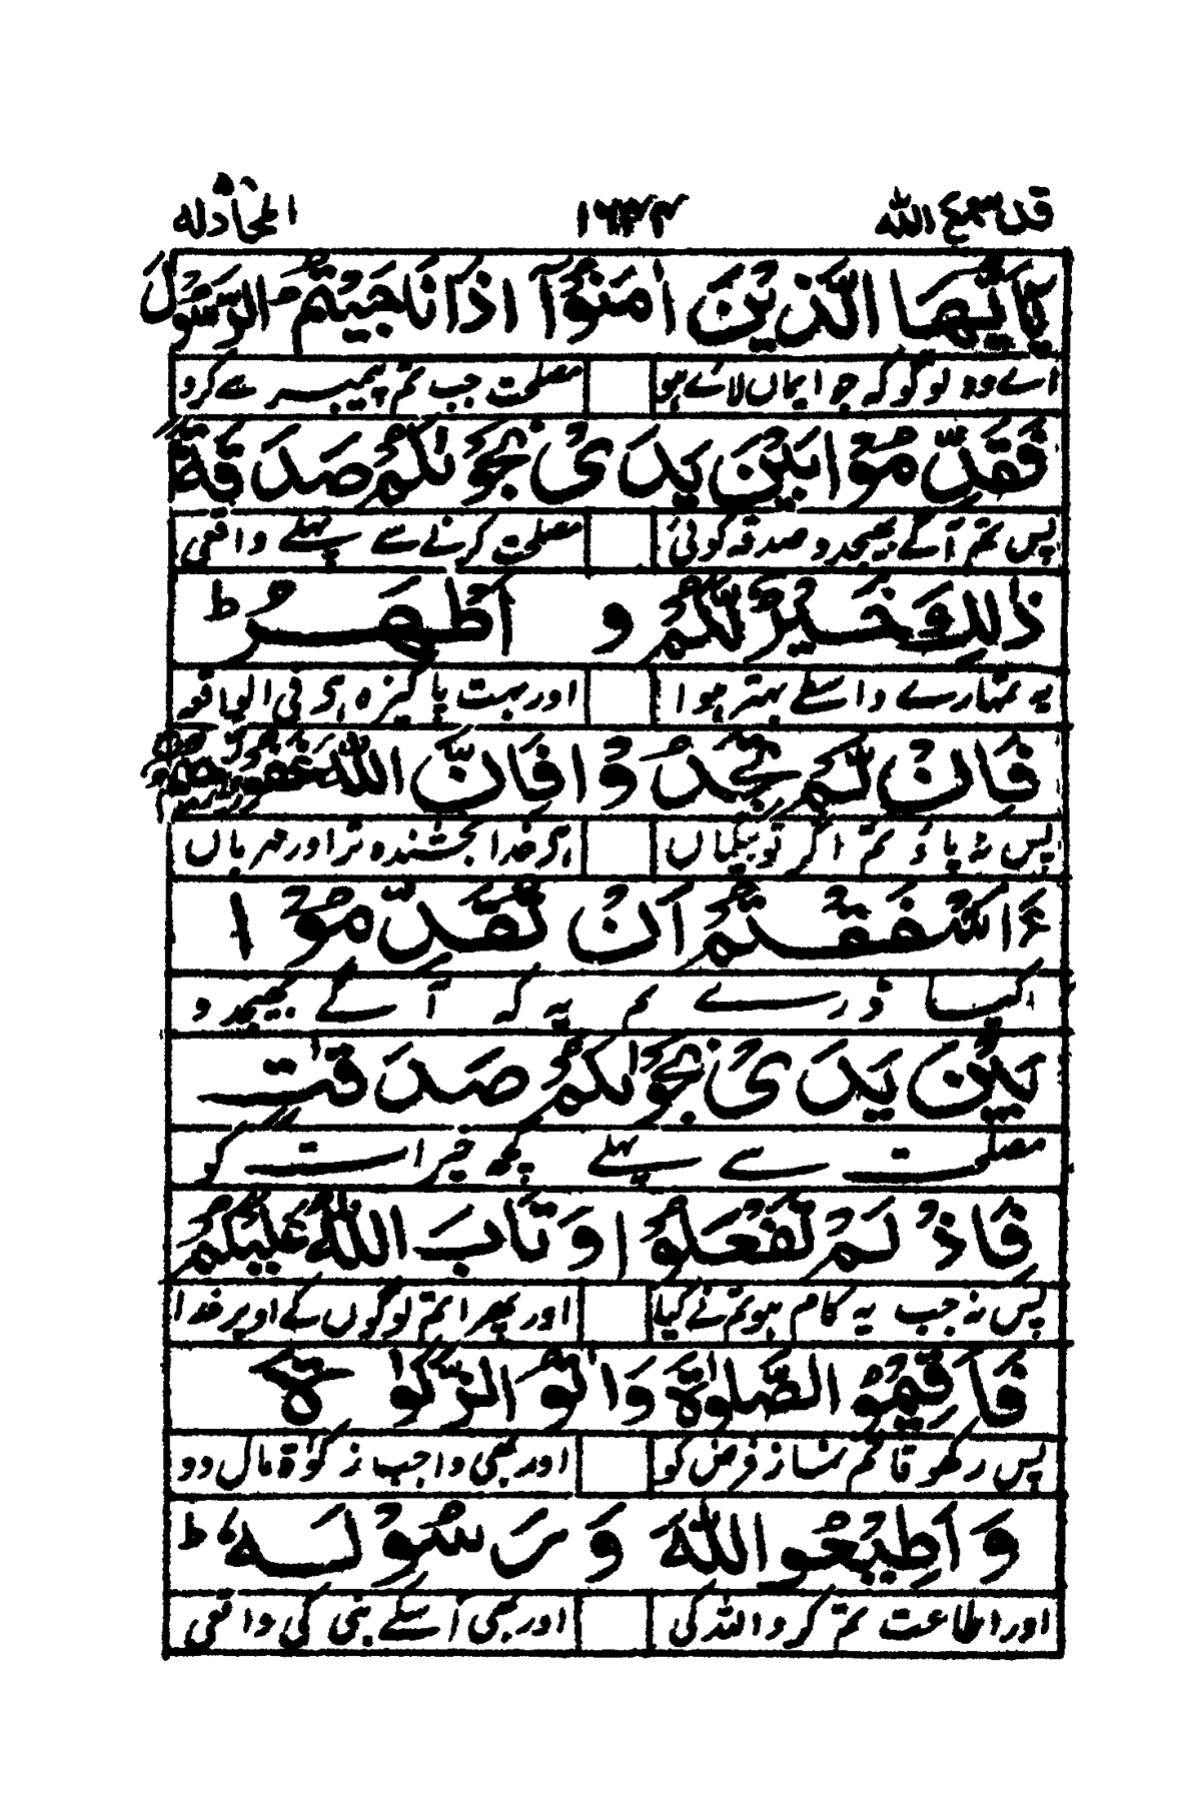 قد سمع الله ۱۶۳۲ المجادلة
يٰٓاَيُّهَا الَّذِيْنَ اٰمَنُوْٓا اِذَا نَاجَيْتُمُ الرَّسُوْلَ
اے وہ لوگو کہ جو ایماں لائے ہو مصلحت جب تم پیمبر سے کرو
فَقَدِّمُوْا بَيْنَ يَدَىْ نَجْوٰىكُمْ صَدَقَةً
پس تم آگے بھیجدو صدقہ کوئی مصلحت کرنے سے پہلے واقعی
ذٰلِكَ خَيْرٌ لَّكُمْ وَ اَطْهَرُ ط
یہ تمہارے واسطے بہتر ہوا اور بہت پاکیزہ ہی فی الواقعہ
فَاِنْ لَّمْ تَجِدُوْا فَاِنَّ اللّٰهَ غَفُوْرٌ رَّحِيْمٌ
پس نہ پاؤ تم اگر تو بیگماں ہے خدا بخشندہ تر اور مہرباں
ءَاَشْفَقْتُمْ اَنْ تُقَدِّمُوْا
کیا ڈرے تم یہ کہ آگے بھیجدو
بَيْنَ يَدَىْ نَجْوٰىكُمْ صَدَقٰتٍ
مصلحت سے پہلے کچھ خیرات کو
فَاِذْ لَمْ تَفْعَلُوْا وَتَابَ اللّٰهُ عَلَيْكُمْ
پس نہ جب یہ کام ہو تم نے کیا اور پھرا تم لوگوں کے اوپر خدا
فَاَقِيْمُوا الصَّلٰوةَ وَاٰتُوا الزَّكٰوةَ
پس رکھو قائم نماز فرض کو اور بھی واجب زکوٰۃ مال دو
وَاَطِيْعُوا اللّٰهَ وَرَسُوْلَهٗ ط
اور اطاعت تم کرو اللہ کی اور بھی اسکے نبی کی واقعی